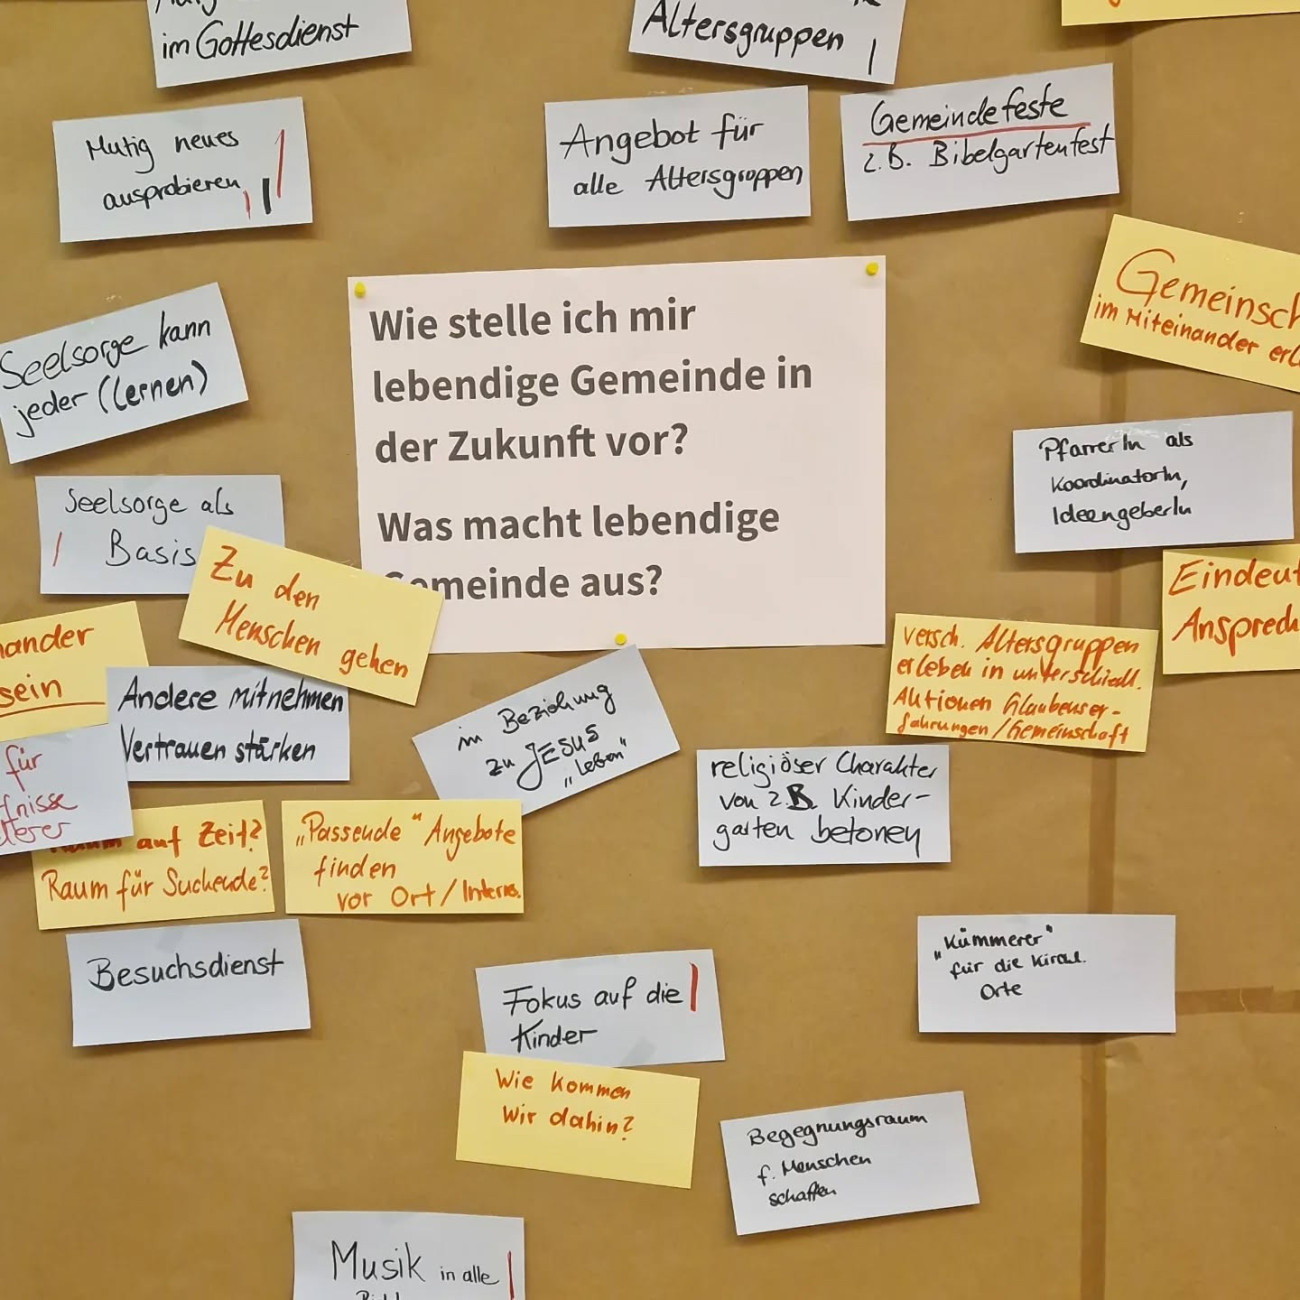 im Gottesdienst
Altersgruppen
Mutig neues
ausprobieren
Angebot für
alle Altersgruppen
Gemeindefeste
z.B. Bibelgartenfest
Gemeinsch
im Miteinander erl
Wie stelle ich mir
lebendige Gemeinde in
der Zukunft vor?
Was macht lebendige
Gemeinde aus?
Seelsorge kann
jeder (lernen)
PfarrerIn als
KoordinatorIn,
IdeengeberIn
Seelsorge als
Basis
Zu den
Menschen gehen
Eindeut
Ansprech
nander
sein
Andere mitnehmen
Vertrauen stärken
versch. Altersgruppen
erleben in unterschiedl.
Aktionen Glaubenser-
fahrungen/Gemeinschaft
in Beziehung
zu JESUS
"leben"
für
fnisse
religiöser Charakter
von z.B. Kinder-
garten betonen
auf Zeit?
Raum für Suchende?
"Passende" Angebote
finden
vor Ort/Intern.
Besuchsdienst
"Kümmerer"
für die kirchl.
Orte
Fokus auf die
Kinder
Wie kommen
wir dahin?
Begegnungsraum
f. Menschen
schaffen
Musik in alle